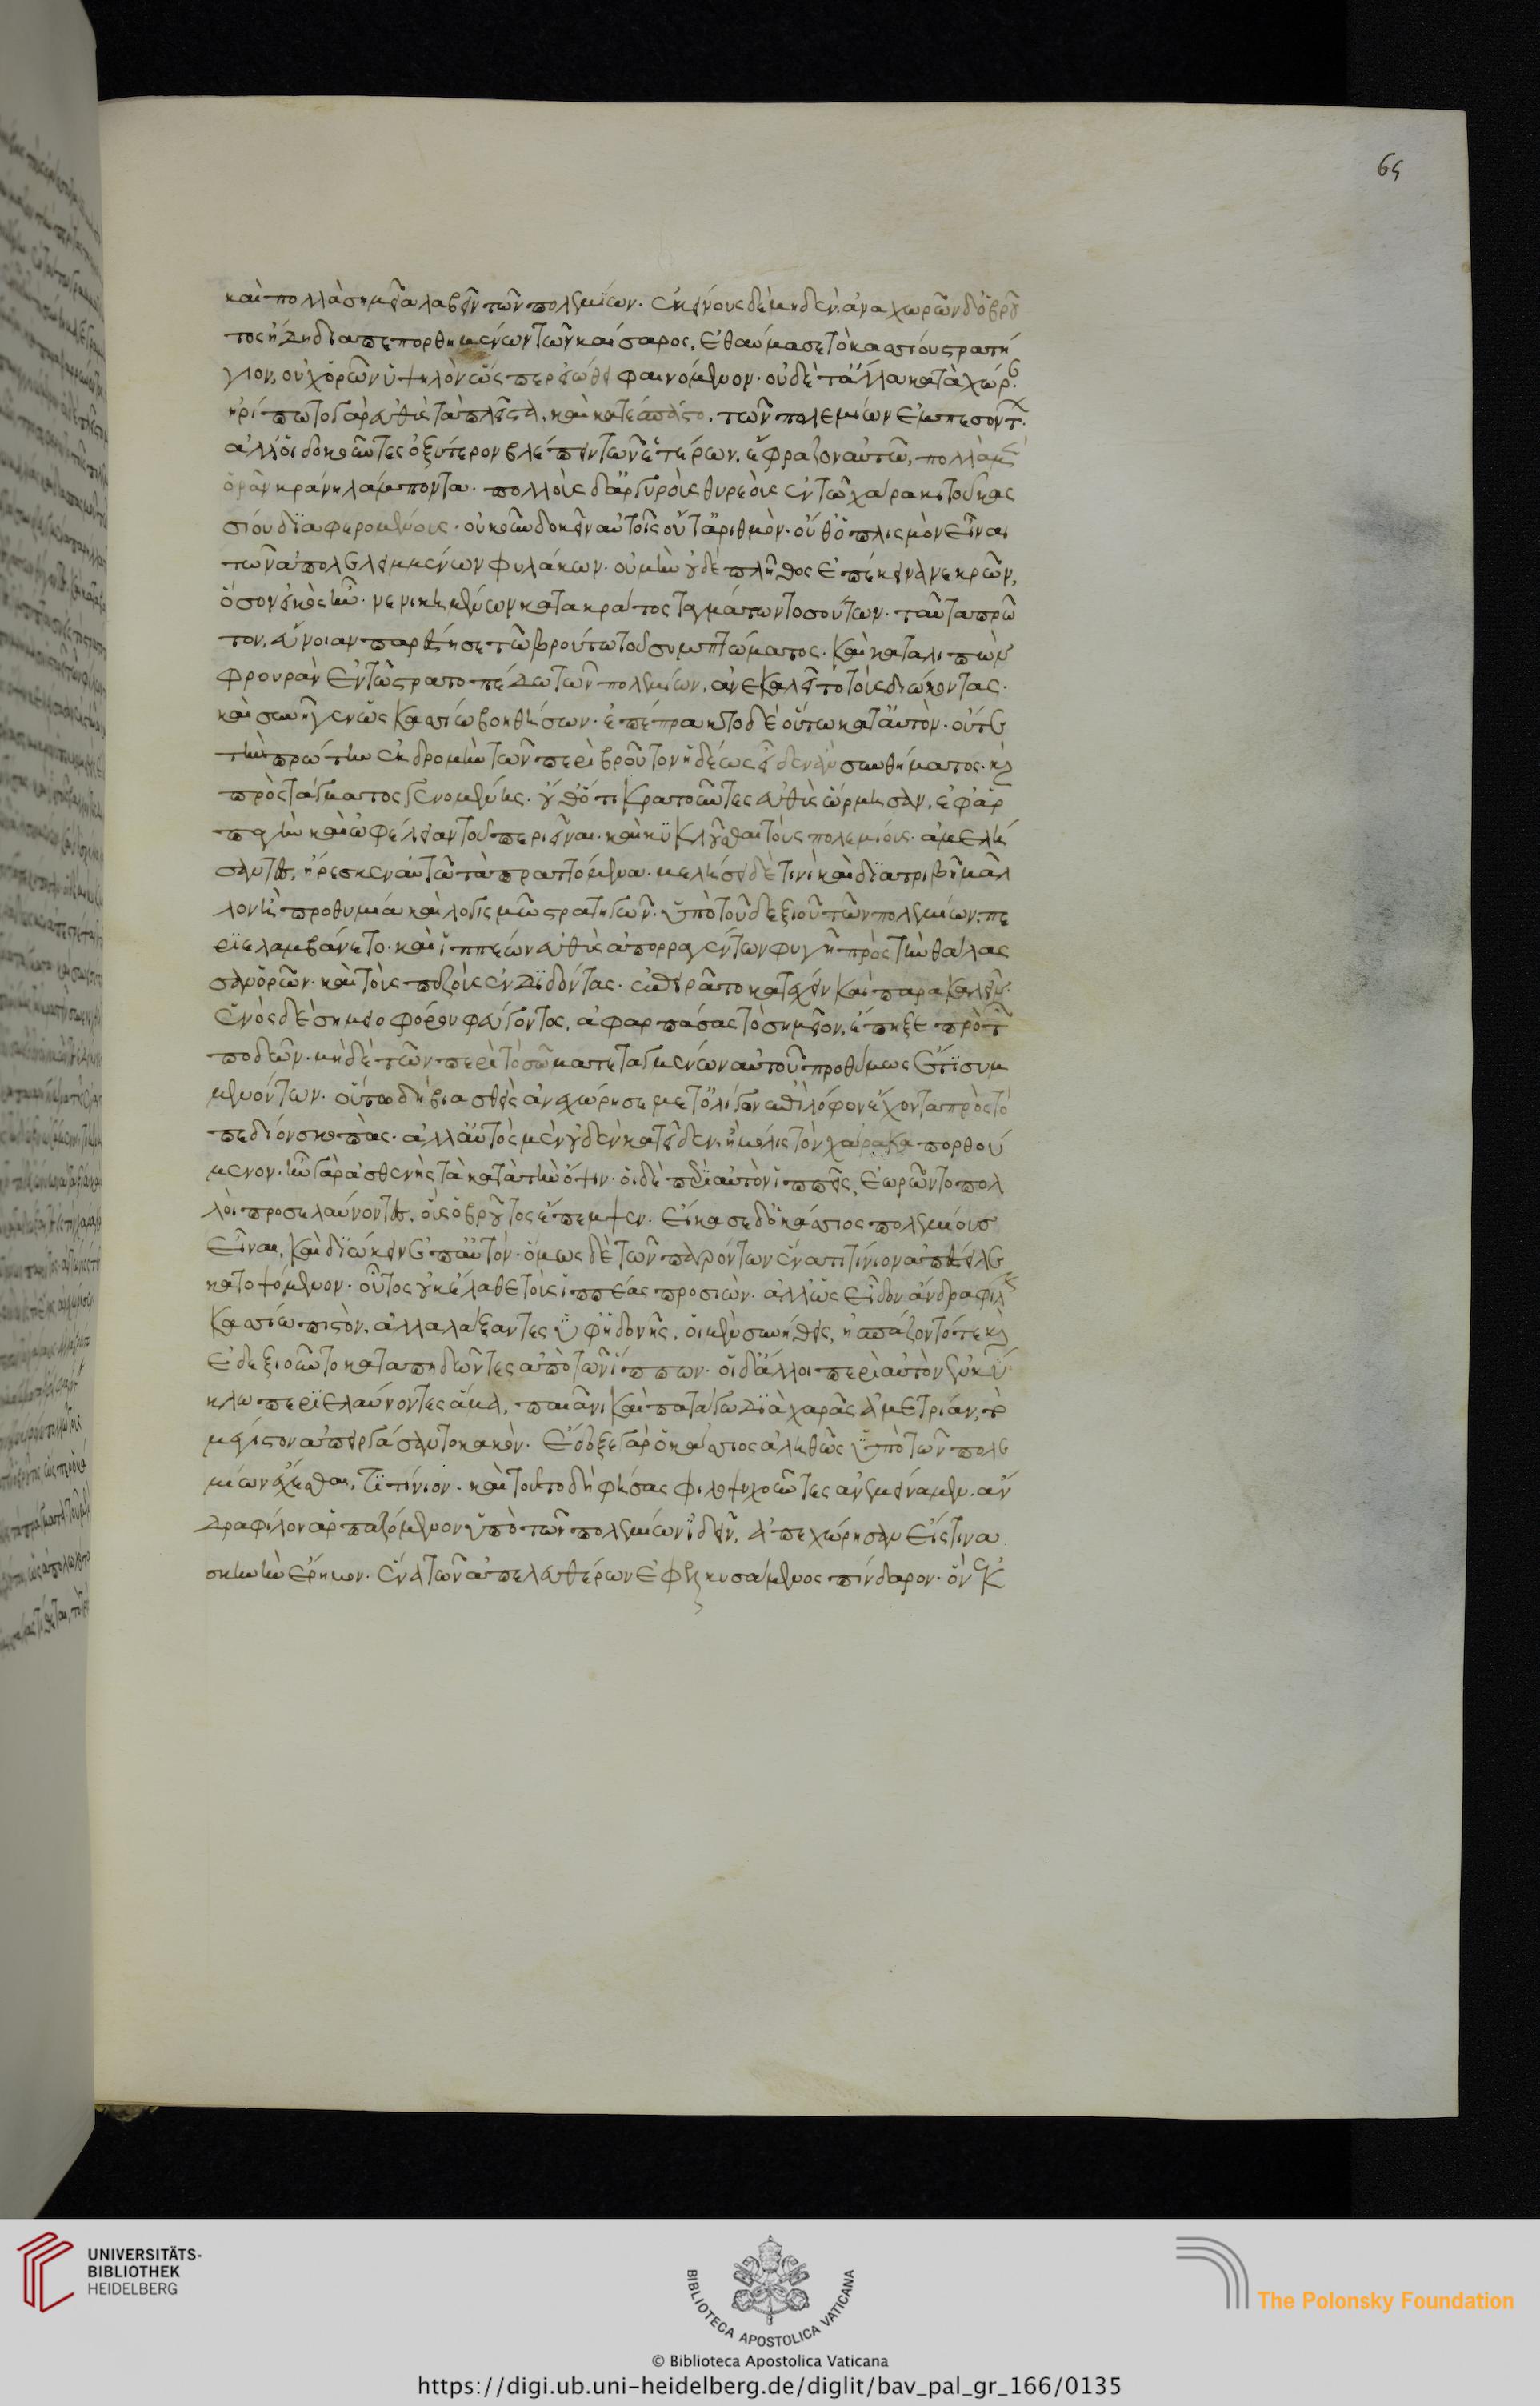 65
καὶ πολλὰ σημεῖα λαβεῖν τῶν πολεμίων. ἐκείνους δὲ μηδέν. ἀναχωρῶν δ' ὁ βροῦ
τος ἤδη διαπεπορθημένων τῶν καίσαρος, ἐθαύμασε τὸ κασσίου στρατή
γιον, οὐχ ὁρῶν ὑψηλὸν ὥσπερ εἰώθει φαινόμενον. οὐδὲ τἄλλα κατὰ χώρ
ἠρίπωτο γὰρ εὐθὺς τὰ πλεῖστα, καὶ κατέσπαστο, τῶν πολεμίων ἐμπεσόντ
ἀλλ' οἱ δοκοῦντες ὀξύτερον βλέπειν τῶν ἑτέρων, ἔφραζον αὐτῶ, πολλὰ μὲν
ὁρᾶν κράνη λάμποντα. πολλοὺς δ' ἀργυροὺς θυρεοὺς ἐν τῶ χάρακι τοῦ κασ
σίου διαφερομένους. οὐκ οὖν δοκεῖν αὐτοῖς οὔτ' ἀριθμὸν. οὔθ' ὁπλισμὸν εἶναι
τῶν ἀπολελειμμένων φυλάκων. οὐ μὴν οὐδὲ πλῆθος ἐπέκεινα νεκρῶν,
ὅσον εἰκὸς ἦν. νενικημένων κατακράτος ταγμάτων τοσούτων. ταῦτα πρῶ
τον, εὔνοιαν παρέστησε τῶ βρούτω τοῦ συμπτώματος. καὶ καταλιπὼν
φρουρὰν ἐν τῶ στρατοπέδω τῶν πολεμίων, ἀνεκαλεῖτο τοὺς διώκοντας.
καὶ συνῆγεν ὡς κασσίω βοηθήσων. ἐπέπρακτο δὲ οὕτω κατ' αὐτὸν. οὔτε
τὴν πρώτην ἐκδρομὴν τῶν περὶ βροῦτον ἡδέως εἶδεν ἄνευ συνθήματος. καὶ
προστάγματος γενομένης. οὔθ' ὅτι κρατοῦντες εὐθὺς ὥρμησαν, ἐφ' ἁρ
παγὴν καὶ ὠφέλειαν τοῦ περιιέναι. καὶ κυκλοῦσθαι τοὺς πολεμίους. ἀμελή
σαντες, ἤρεσκεν αὐτῶ τὰ πραττόμενα. μελλήσει δέ τινι καὶ διατριβῆ μᾶλ
λον ἢ προθυμία καὶ λογισμῶ στρατηγῶν. ὑπὸ τοῦ δεξιοῦ τῶν πολεμίων, πε
ριελαμβάνετο. καὶ ἱππέων εὐθὺς ἀπορραγέντων φυγῆ πρὸς τὴν θάλασ
σαν ὁρῶν. καὶ τοὺς πεζοὺς ἐνδιδόντας. ἐπειρᾶτο κατέχειν καὶ παρακαλεῖν.
ἑνὸς δὲ σημειοφόρου φεύγοντος, ἀφαρπάσας τὸ σημεῖον, ἔπηξε πρὸ τῶν
ποδῶν. μηδὲ τῶν περὶ τὸ σῶμα τεταγμένων αὐτοῦ προθύμως ἔτι συμ
μενόντων. οὕτω δὴ βιασθεὶς ἀνεχώρησε μετ' ὀλίγων ἐπὶ λόφον ἔχοντα πρὸς τὸ
πεδίον σκοπὰς. ἀλλ' αὐτὸς μὲν οὐδὲν κατεῖδεν, ἢ μόλις τὸν χάρακα πορθού
μενον. ἦν γὰρ ἀσθενὴς τὰ κατὰ τὴν ὄψιν. οἱ δὲ περὶ αὐτὸν ἱππεῖς, ἑωρῶντο πολ
λοὶ προσελαύνοντες, οἷς ὁ βροῦτος ἔπεμψεν. εἴκασε δ' ὁ κάσσιος πολεμίους
εἶναι, καὶ διώκειν ἐπ' αὐτόν. ὅμως δὲ τῶν παρόντων ἕνα τιτίνιον ἀπέστειλε
κατοψόμενον. οὗτος οὐκ ἔλαθε τοὺς ἱππέας προσιὼν. ἀλλ' ὡς εἶδον ἄνδρα φίλ
κασσίω πιστόν, ἀλαλάξαντες ὑφ' ἡδονῆς, οἱ μὲν συνήθεις, ἠσπάζοντό τε καὶ
ἐδεξιοῦντο καταπηδῶντες ἀπὸ τῶν ἵππων. οἱ δ' ἄλλοι περὶ αὐτὸν ἐν κύ
κλω περιελαύνοντες ἅμα, παιᾶνι καὶ πατάγω διὰ χαρᾶς ἀμετρίαν, τὸ
μέγιστον ἀπειργάσαντο κακόν. ἔδοξε γὰρ ὁ κάσσιος ἀληθῶς ὑπὸ τῶν πολε
μίων ἔχεσθαι, τιτίνιον. καὶ τοῦτο δὴ φήσας φιλοψυχοῦντες ἀνεμείναμεν. ἄν
δρα φίλον ἁρπαζόμενον ὑπὸ τῶν πολεμίων ἰδεῖν, ἀπεχώρησεν εἴς τινα
σκηνὴν ἔρημον. ἕνα τῶν ἀπελευθέρων ἐφελκυσάμενος πίνδαρον. ὃν ἐκ
UNIVERSITÄTS-
BIBLIOTHEK
HEIDELBERG
BIBLIOTECA APOSTOLICA VATICANA
The Polonsky Foundation
© Biblioteca Apostolica Vaticana
https://digi.ub.uni-heidelberg.de/diglit/bav_pal_gr_166/0135